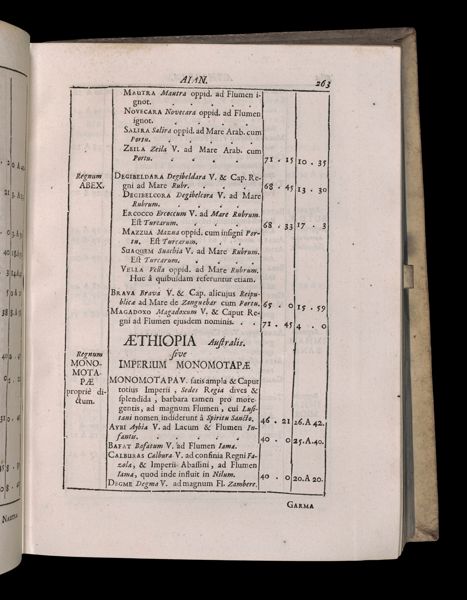 AIAN. 263
MAUTRA Mautra oppid. ad Flumen i-
gnot.
NOVECARA Novecara oppid. ad Flumen
ignot.
SALIRA Salira oppid. ad Mare Arab. cum
Portu.
ZEILA Zeila V. ad Mare Arab. cum
Portu. 71 . 15 10 . 35
Regnum
ABEX.
DEGIBELDARA Degibeldara V. & Cap. Re-
gni ad Mare Rubr. 68 . 45 13 . 30
DEGIBELCORA Degibelcora V. ad Mare
Rubrum.
ERCOCCO Ercoccum V. ad Mare Rubrum.
Est Turcarum. 68 . 33 17 . 3
MAZZUA oppid. cum insigni Por-
tu. Est Turcarum.
SUAQUEM V. ad Mare Rubrum.
Est Turcarum.
VELLA Vella oppid. ad Mare Rubrum.
Huc à quibusdam referuntur etiam.
BRAVA Brava V. & Cap. alicujus Reipu-
blicæ ad Mare de Zanguebar cum Portu. 65 . 0 15 . 59
MAGADOXO Magadoxum V. & Caput Re-
gni ad Flumen ejusdem nominis. 71 . 45 4 . 0
ÆTHIOPIA Australis.
sive
IMPERIUM MONOMOTAPÆ
Regnum
MONO-
MOTA-
PÆ
propriè di-
ctum.
MONOMOTAPA V. satis ampla & Caput
totius Imperii, Sedes Regia dives &
splendida, barbara tamen pro more
gentis, ad magnum Flumen, cui Lusi-
tani nomen indiderunt à Spiritu Sancto. 46 . 21 26.A 42.
AYBI Aybia V. ad Lacum & Flumen In-
fantus. 40 . 0 25.A.40.
BAFAT Bafatum V. ad Flumen Iama.
CALBURAS Calbura V. ad confinia Regni Fa-
zola, & Imperii Abassini, ad Flumen
Iama, quod inde influit in Nilum. 40 . 0 20.A 20.
DEGME Degma V. ad magnum Fl. Zambere.
GARMA